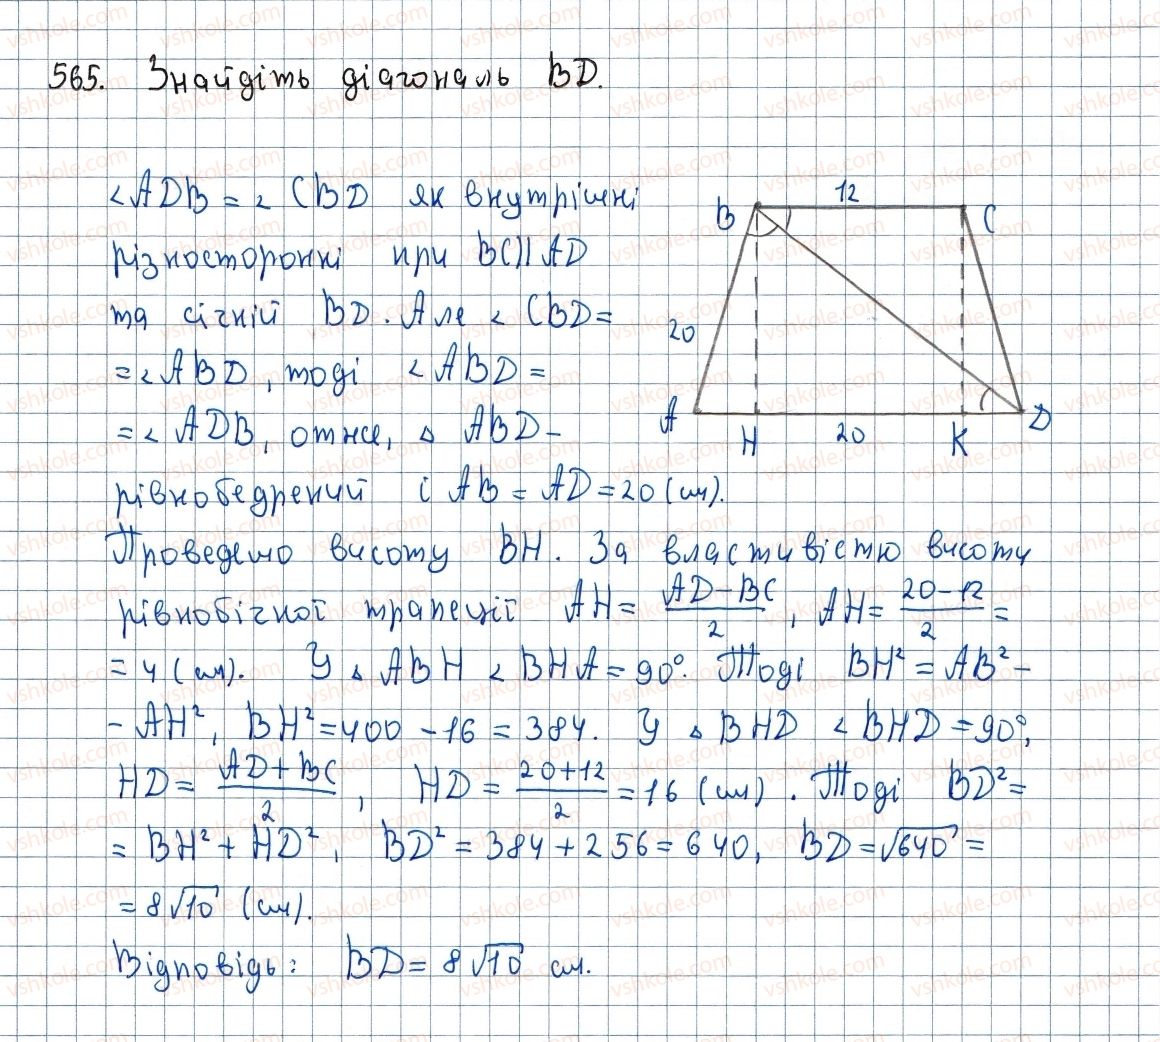 565. Знайдіть діагональ BD.
∠ADB = ∠CBD як внутрішні
різносторонні при BC || AD
та січній BD. Але ∠CBD =
= ∠ABD, тоді ∠ABD =
= ∠ADB, отже, △ ABD –
рівнобедрений і AB = AD = 20 (см).
Проведемо висоту BH. За властивістю висоти
рівнобічної трапеції AH = (AD – BC)/2, AH = (20 – 12)/2 =
= 4 (см). У △ ABH ∠BHA = 90°. Тоді BH² = AB² –
– AH², BH² = 400 – 16 = 384. У △ BHD ∠BHD = 90°,
HD = (AD + BC)/2, HD = (20 + 12)/2 = 16 (см). Тоді BD² =
= BH² + HD², BD² = 384 + 256 = 640, BD = √640 =
= 8√10 (см).
Відповідь: BD = 8√10 см.
12
B
C
20
A
H
20
K
D
vshkole.com